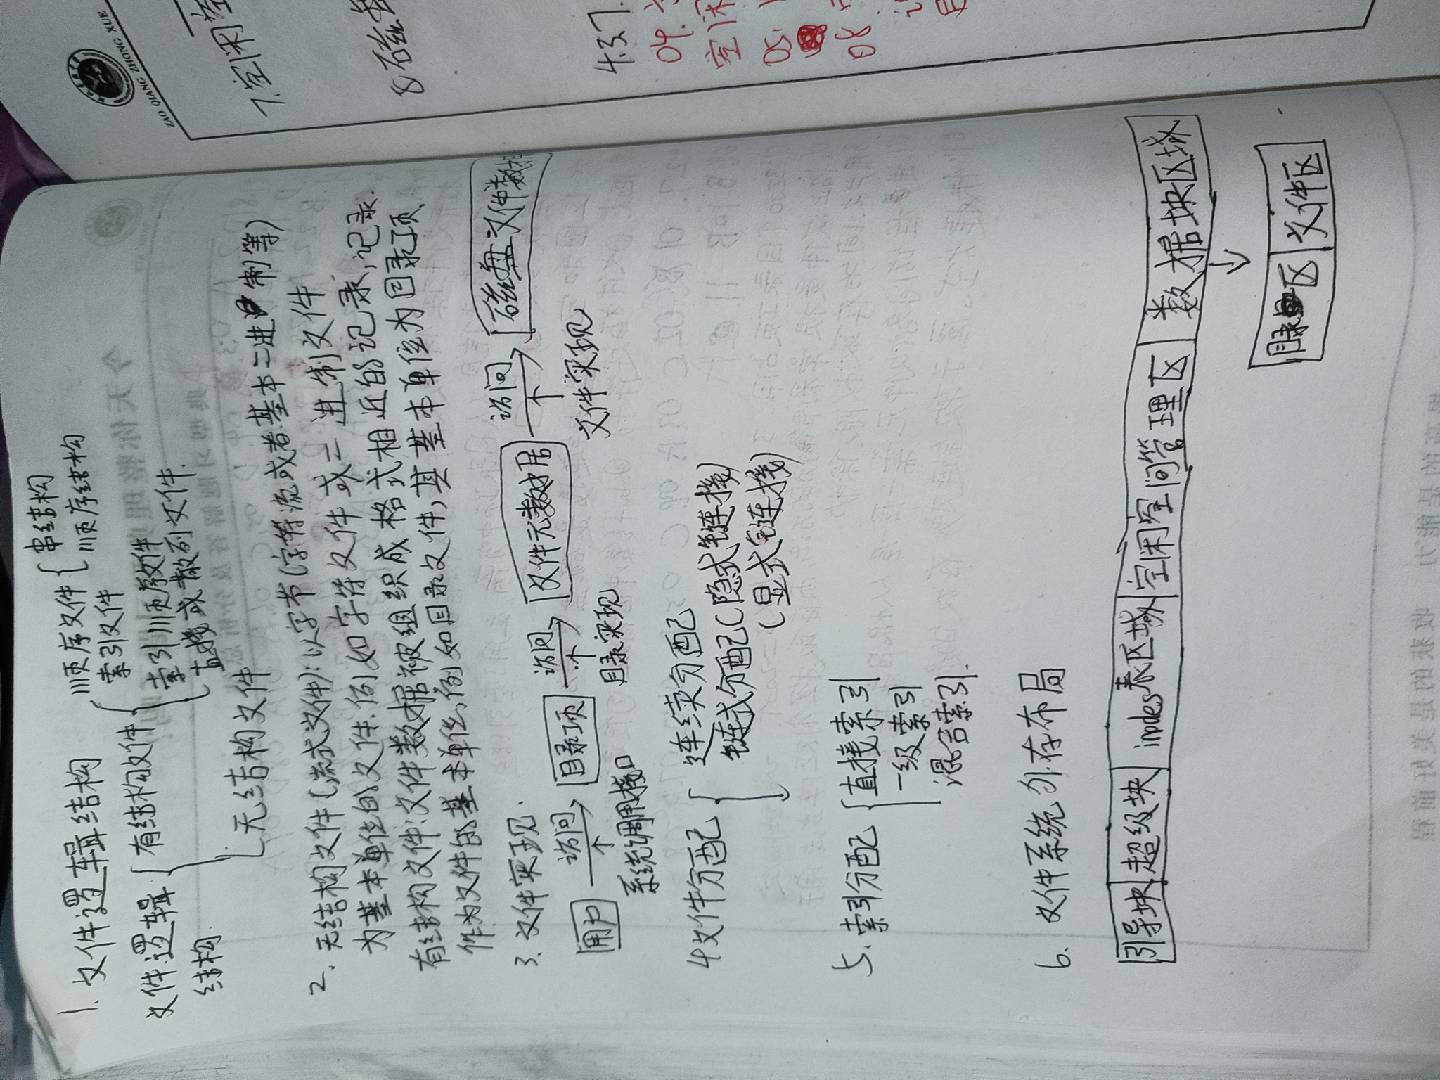 1. 文件逻辑结构
文件逻辑结构
有结构文件
顺序文件
串结构
顺序结构
索引文件
索引顺序文件
直接或散列文件.
无结构文件
2. 无结构文件(流式文件):以字节(字符流或者基本二进制等)
为基本单位的文件.例如字符文件或二进制文件
有结构文件:文件数据被组织成格式相近的记录,记录.
作为文件的基本单位,例如目录文件,其基本单位为目录项
3. 文件实现.
用户
访问
系统调用接口
目录项
访问
目录实现
文件元数据
访问
文件实现
磁盘文件数据
4文件分配
连续分配
链式分配(隐式链接)
(显式链接)
5. 索引分配
直接索引
一级索引
混合索引.
6. 文件系统外存布局
引导块 超级块 inodes表区域 空闲空间管理区 数据块区域
目录区 文件区
ZAO QIANG ZHONG XUE
7.空闲空
8.磁盘
4.3.7.
04.
空闲
05.
08.